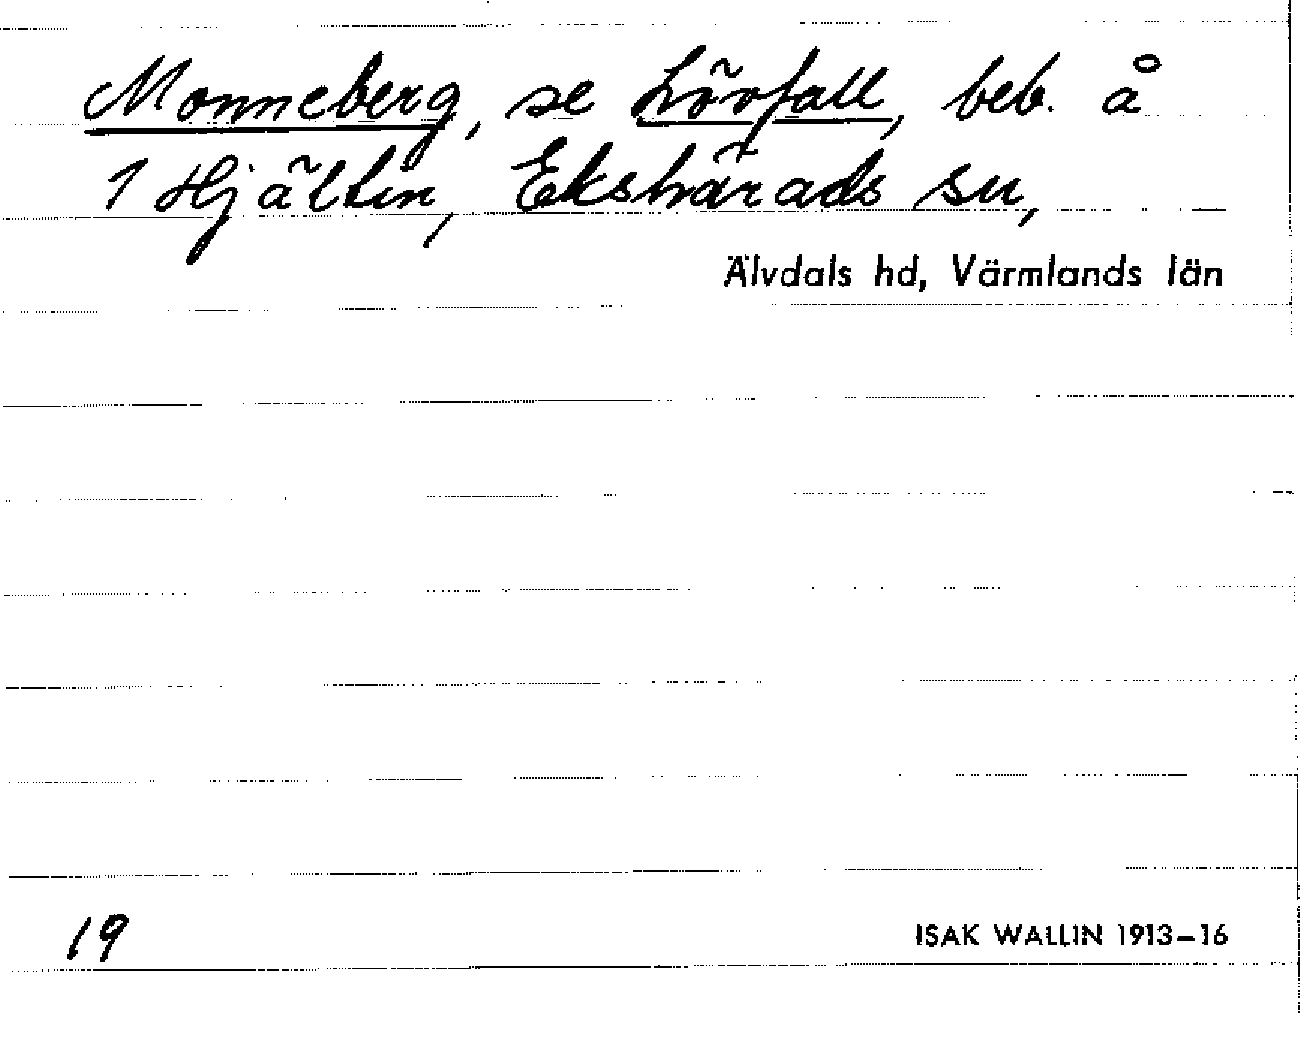 Monneberg, se Lövfall, beb. å
1 Hjältin, Ekshärads sn,
Älvdals hd, Värmlands län
19
ISAK WALLIN 1913–16